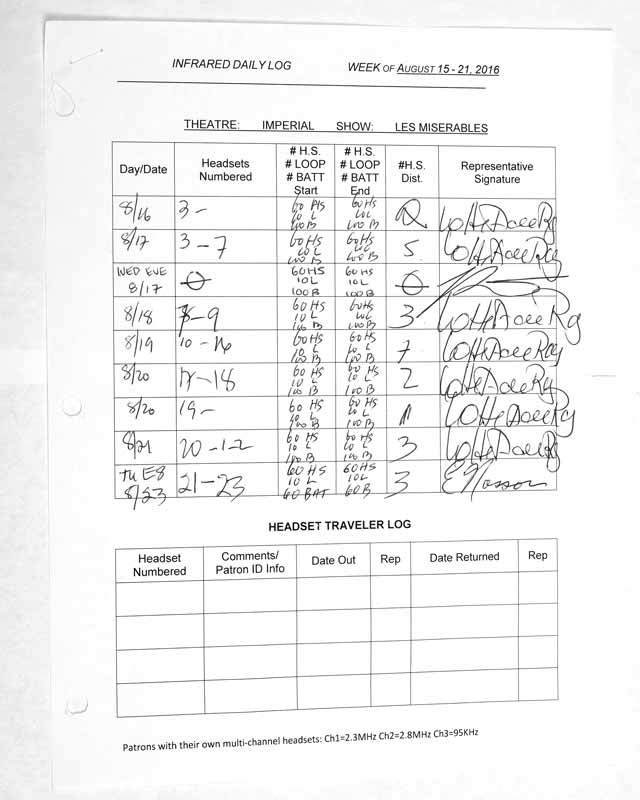 INFRARED DAILY LOG WEEK OF AUGUST 15 - 21, 2016
THEATRE: IMPERIAL SHOW: LES MISERABLES
Day/Date
Headsets
Numbered
# H.S.
# LOOP
# BATT
Start
# H.S.
# LOOP
# BATT
End
#H.S.
Dist.
Representative
Signature
8/16
3 -
10 L
100 B
60 HS
8/17
3 - 7
60 HS
100 B
60 HS
100 B
5
WED EVE
8/17
60 HS
10 L
100 B
60 HS
10 L
100 B
8/18
- 9
60 HS
10 L
100 B
60 HS
100 B
3
8/19
10 - 16
60 HS
10 L
100 B
60 HS
10 L
100 B
7
8/20
17 - 18
60 HS
10 L
100 B
60 HS
10 L
100 B
2
8/20
19 -
60 HS
10 L
100 B
60 HS
10 L
100 B
1
8/21
20 - 12
60 HS
10 L
100 B
60 HS
10 L
100 B
3
8/23
21 - 23
60 HS
10 L
60 BAT
60 HS
10 L
60 B
3
HEADSET TRAVELER LOG
Headset
Numbered
Comments/
Patron ID Info
Date Out
Rep
Date Returned
Rep
Patrons with their own multi-channel headsets: Ch1=2.3MHz Ch2=2.8MHz Ch3=95KHz